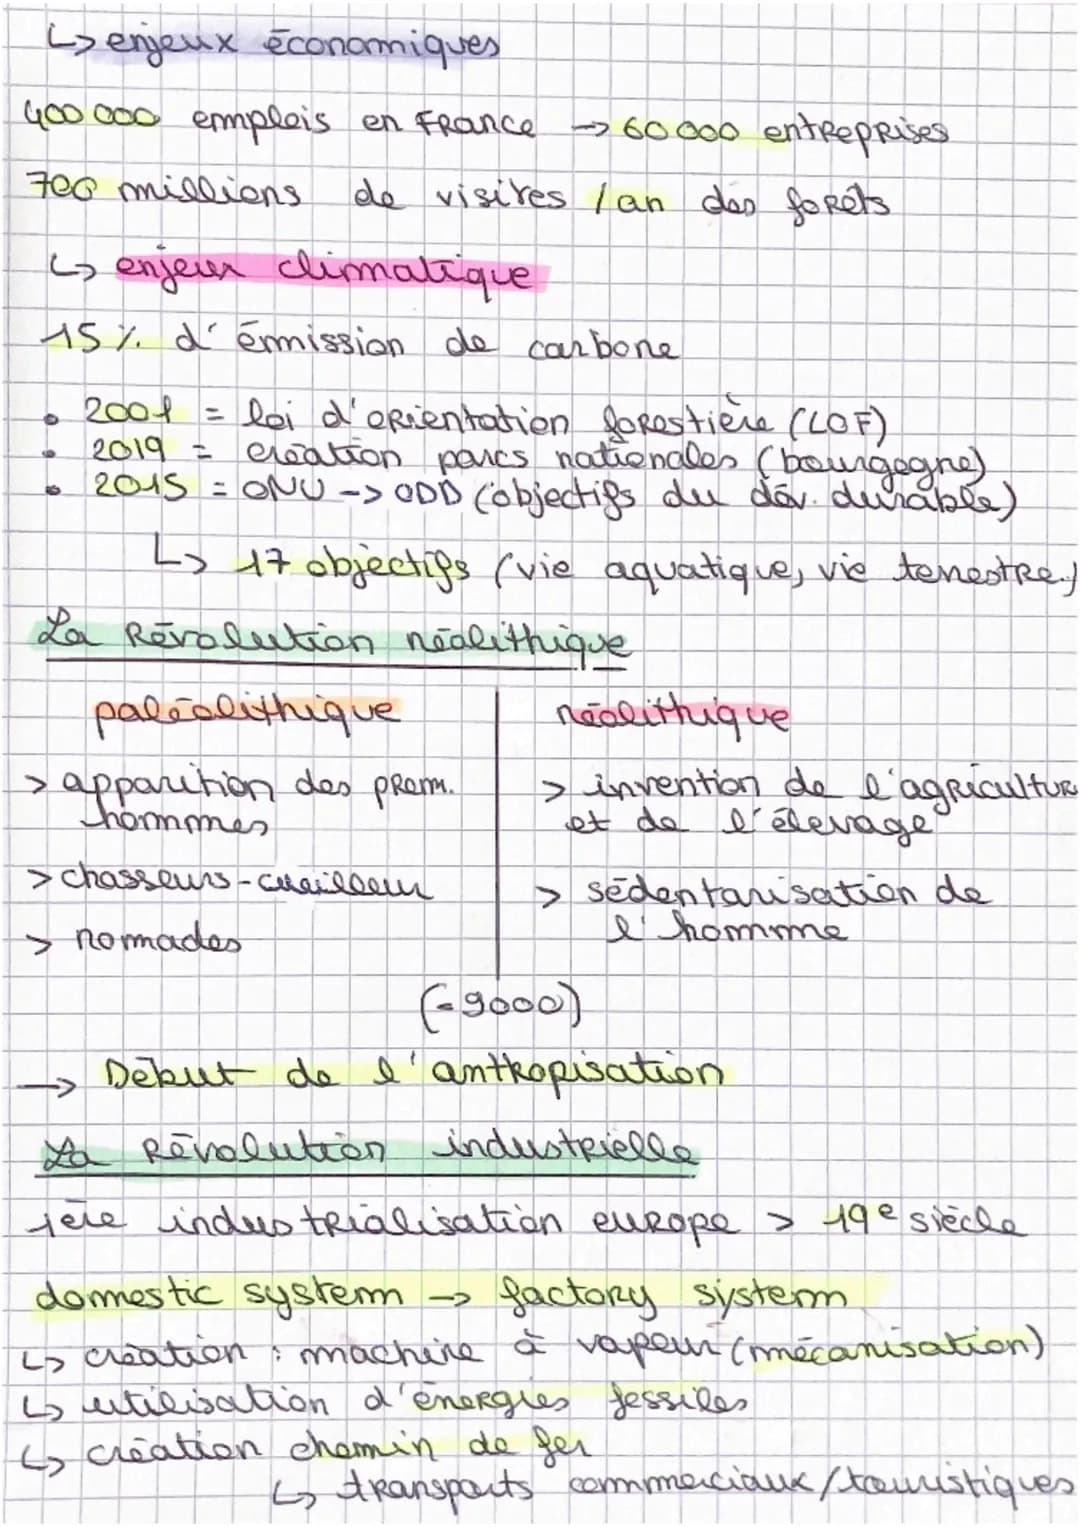 ↳ enjeux économiques
400 000 emplois en France → 60 000 entreprises
700 millions de visites / an des forêts
↳ enjeu climatique
15 % d'émission de carbone
• 2001 = loi d'orientation forestière (LOF)
• 2019 = création parcs nationales (bourgogne)
• 2015 = ONU -> ODD (objectifs du dév. durable)
↳ 17 objectifs (vie aquatique, vie terrestre.)
La Révolution néolithique
paléolithique
> apparition des prem.
hommes
> chasseurs-cueilleur
> nomades
néolithique
> invention de l'agricultur
et de l'élevage
> sédentarisation de
l'homme
(-9000)
→ Début de l'anthropisation
La Révolution industrielle
1ère industrialisation europe > 19e siècle
domestic system → factory system
↳ création : machine à vapeur (mécanisation)
↳ utilisation d'énergies fossiles
↳ création chemin de fer
↳ transports commerciaux/touristiques